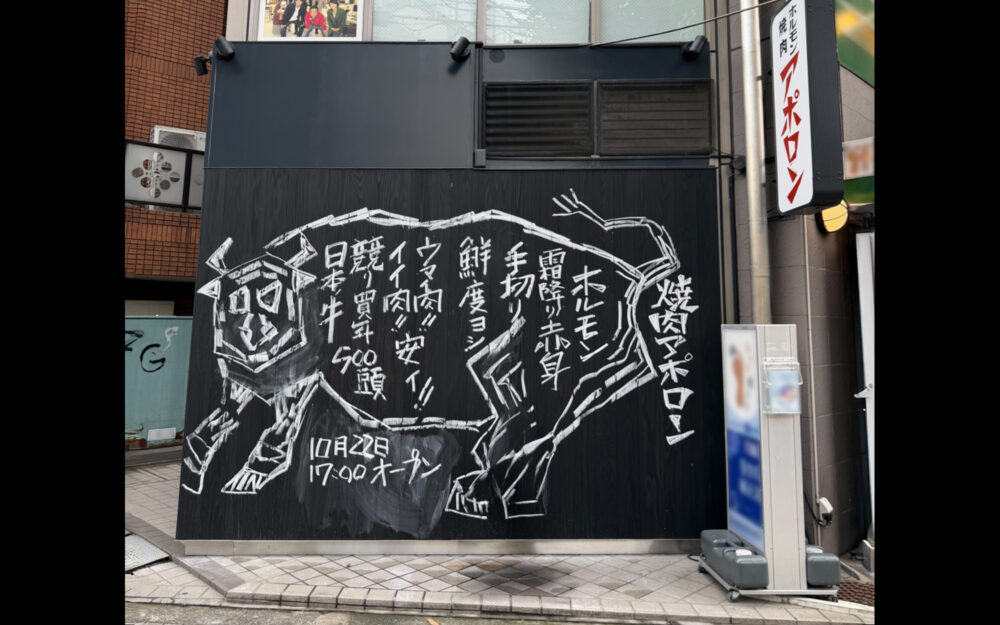 ホルモン
焼肉
アポロン
焼肉アポロン
ホルモン
霜降り赤身
手切り
鮮度ヨシ
ウマイ肉!!
イイ肉!!安イ!!
競り買年500頭
日本牛
10月22日
17:00オープン
ZG